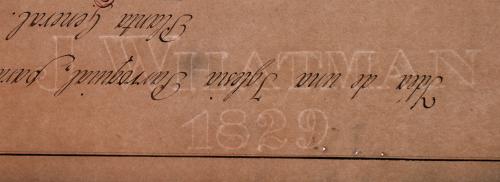 J WHATMAN
1829
Idea de una Iglesia Parroquial, para
Planta General.